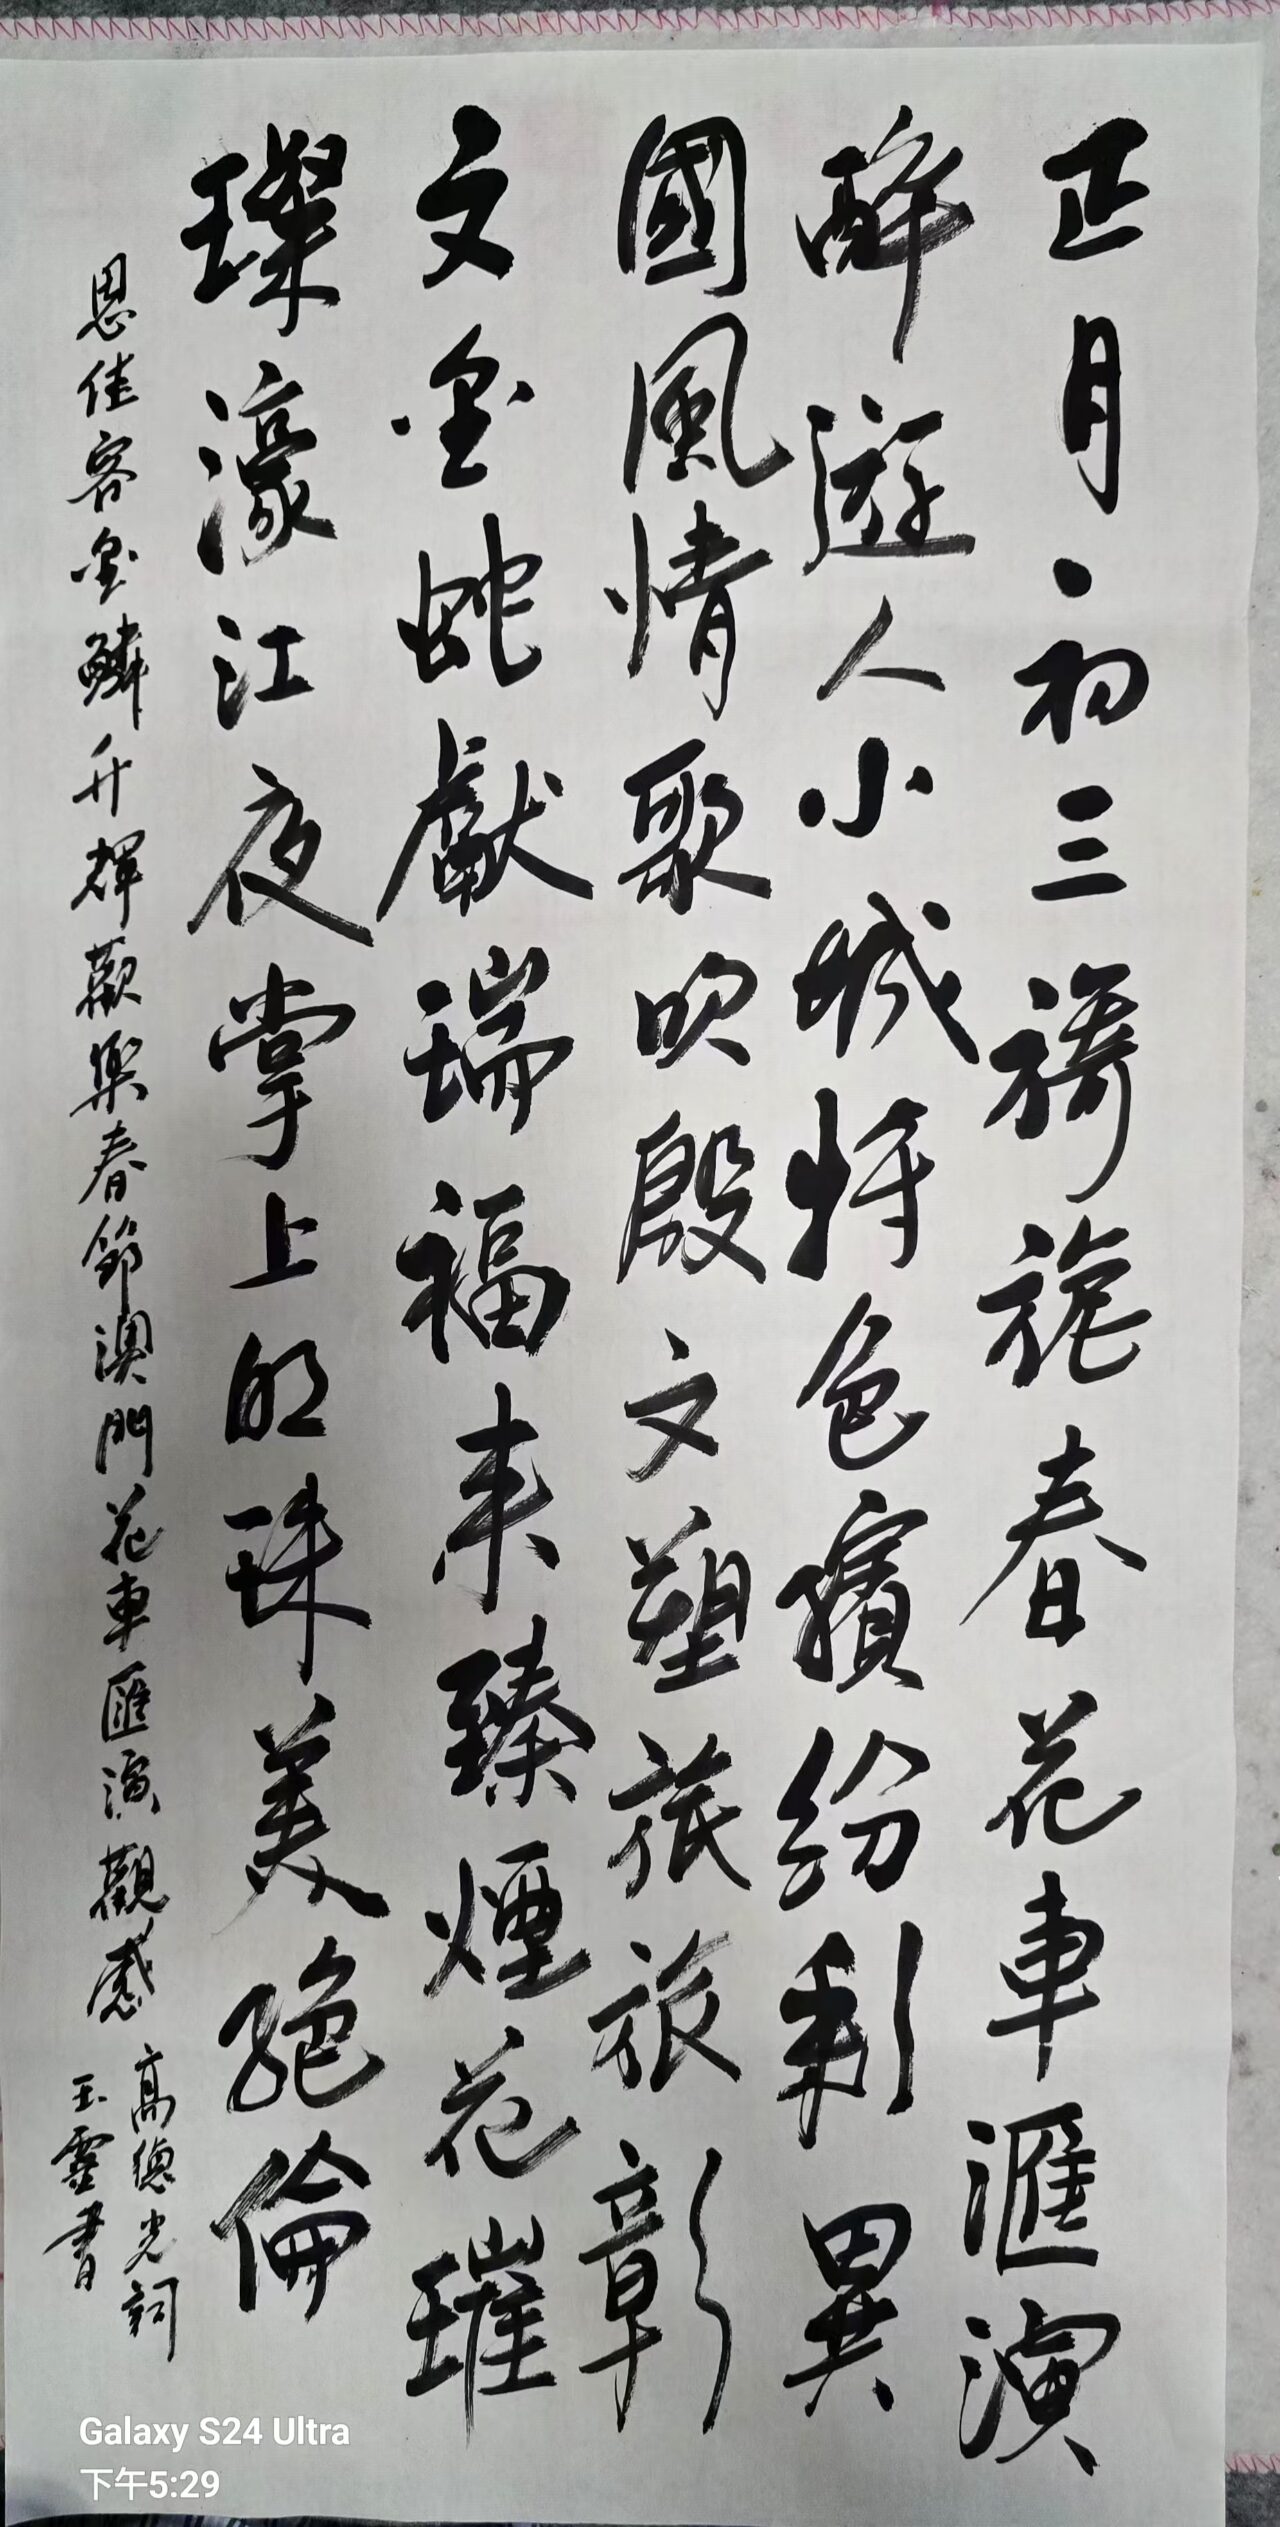 正月初三旖旎春花車滙演
醉遊人小城特色繽紛彩異
國風情歌吹殷文塑旅旅彰
文金蛇獻瑞福來臻煙花璀
璨濠江夜掌上明珠美絕倫
思佳客金鱗升輝歡樂春節澳門花車匯演觀感
高德光詞
玉靈書
Galaxy S24 Ultra
下午5:29